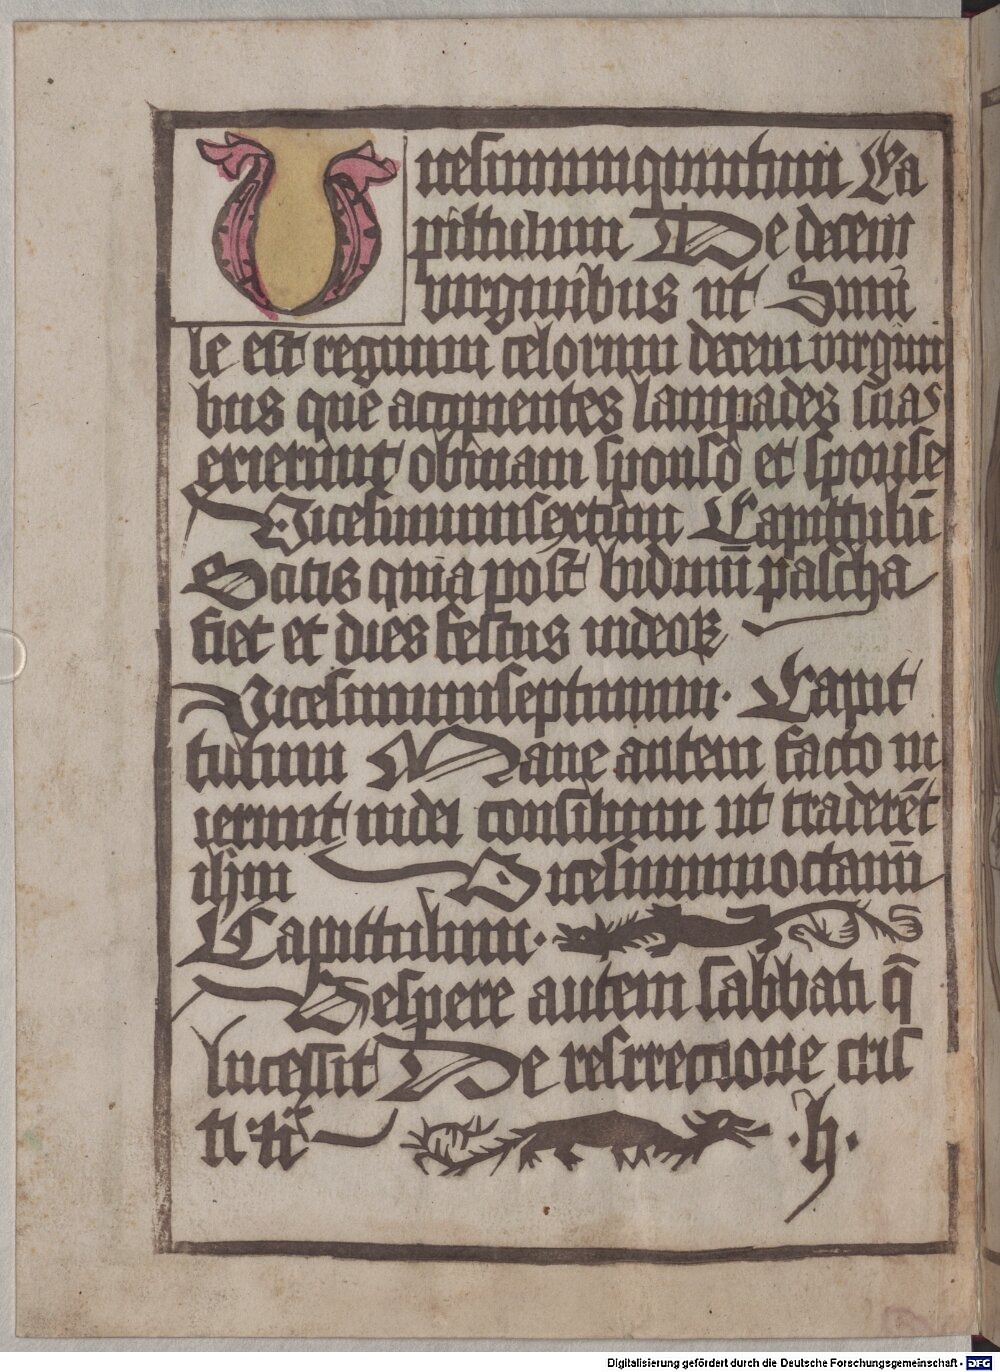 Vicesimumquintum Ca
pittulum De decem
virginibus ut Simi
le est regnum celorum decem virgini
bus que accipientes lampades suas
exierunt obuiam sponso et sponse
Vicesimumsextum Capittulū
Scitis quia post biduum pascha
fiet et dies festus iudeoꝝ
Vicesimumseptimum. Capit
tulum Mane autem facto in
ierunt iudei consilium ut traderēt
ihm Vicesimumoctauū
Capittulum.
Vespere autem sabbati q̄
lucessit De resrrectione cris
ti
.h.
Digitalisierung gefördert durch die Deutsche Forschungsgemeinschaft - DFG